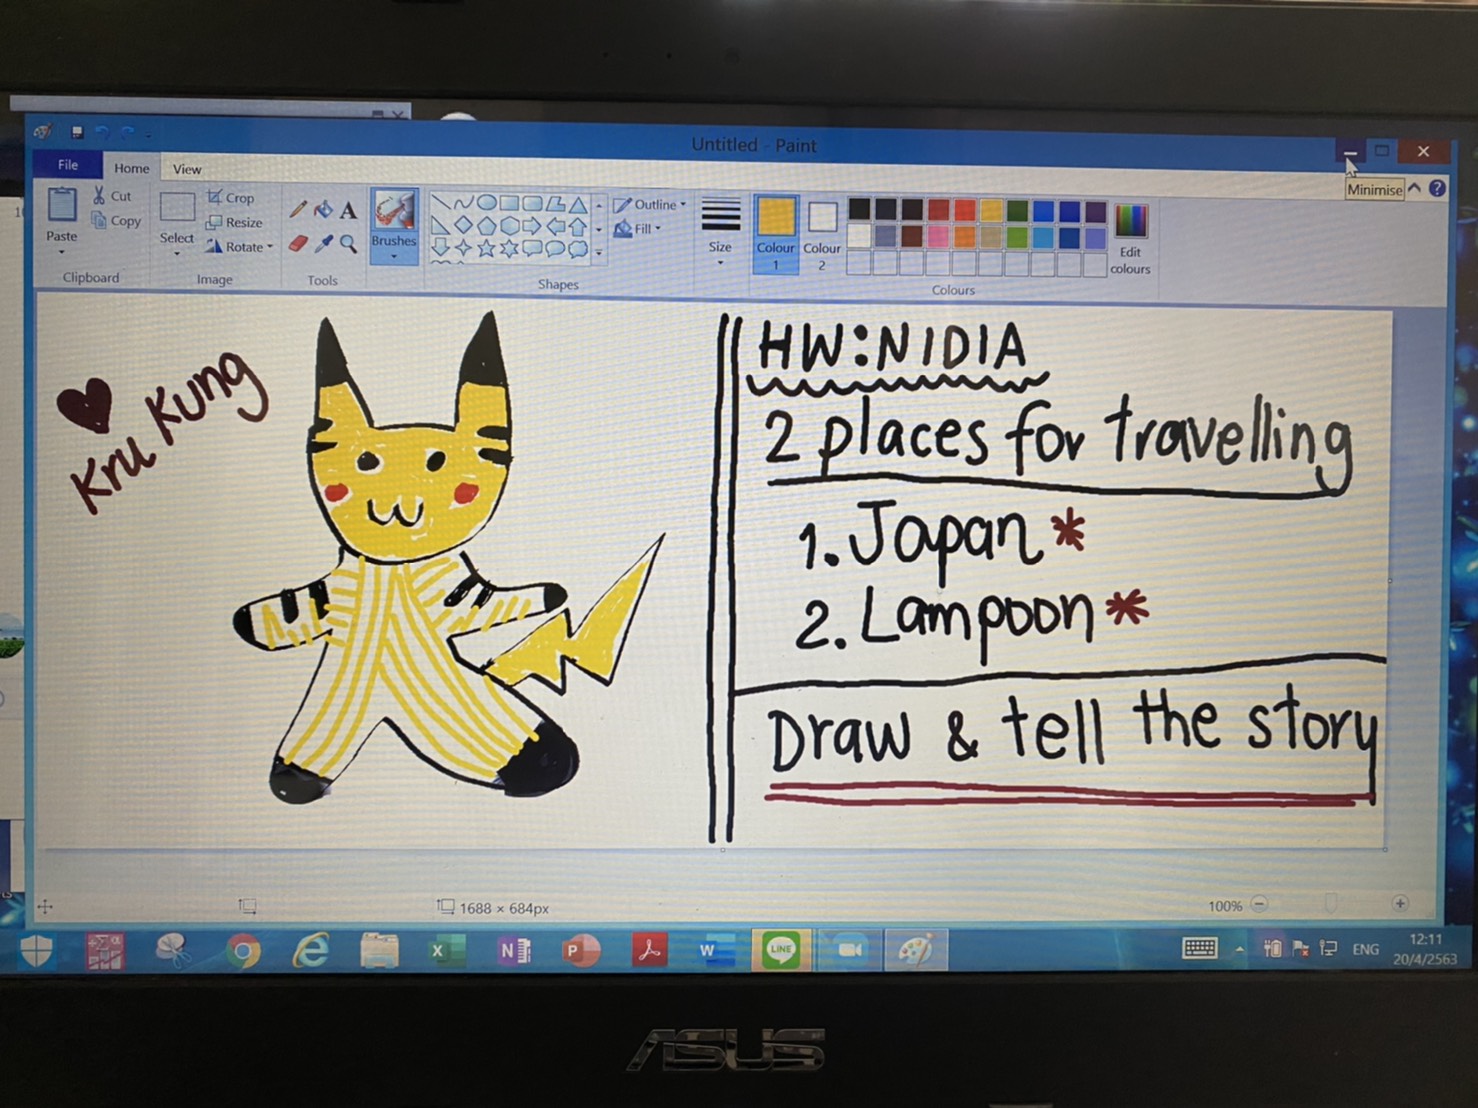 Untitled - Paint
File
Home
View
Minimise
Paste
Cut
Copy
Clipboard
Select
Crop
Resize
Rotate
Image
A
Tools
Brushes
Outline
Fill
Shapes
Size
Colour 1
Colour 2
Edit colours
Colours
Kru Kung
HW:NIDIA
2 places for travelling
1. Japan *
2. Lampoon *
Draw & tell the story
1688 × 684px
100%
LINE
ENG
12:11
20/4/2563
ASUS